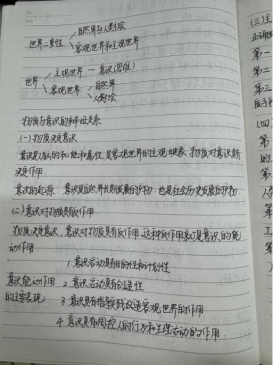 自然界与人类社会
世界二重性
客观世界和主观世界
主观世界 — 意识(思维)
世界
客观世界 自然界
人类社会
物质与意识的辩证关系
(一)物质决定意识
意识是人脑的机能和属性,是客观世界的主观映象,物质对意识具有
决定作用
意识的起源 意识是自然界长期发展的产物 也是社会历史发展的产物
(二)意识对物质具有反作用
物质决定意识,意识对物质具有反作用,这种反作用就是意识的能
动作用
1 意识活动具有目的性和计划性
意识能动作用 2 意识活动具有创造性
的主要表现 3 意识具有指导实践改造客观世界的作用
4 意识具有调控人的行为和生理活动的作用
(三)
第一
第二
第三
(四)
第
第